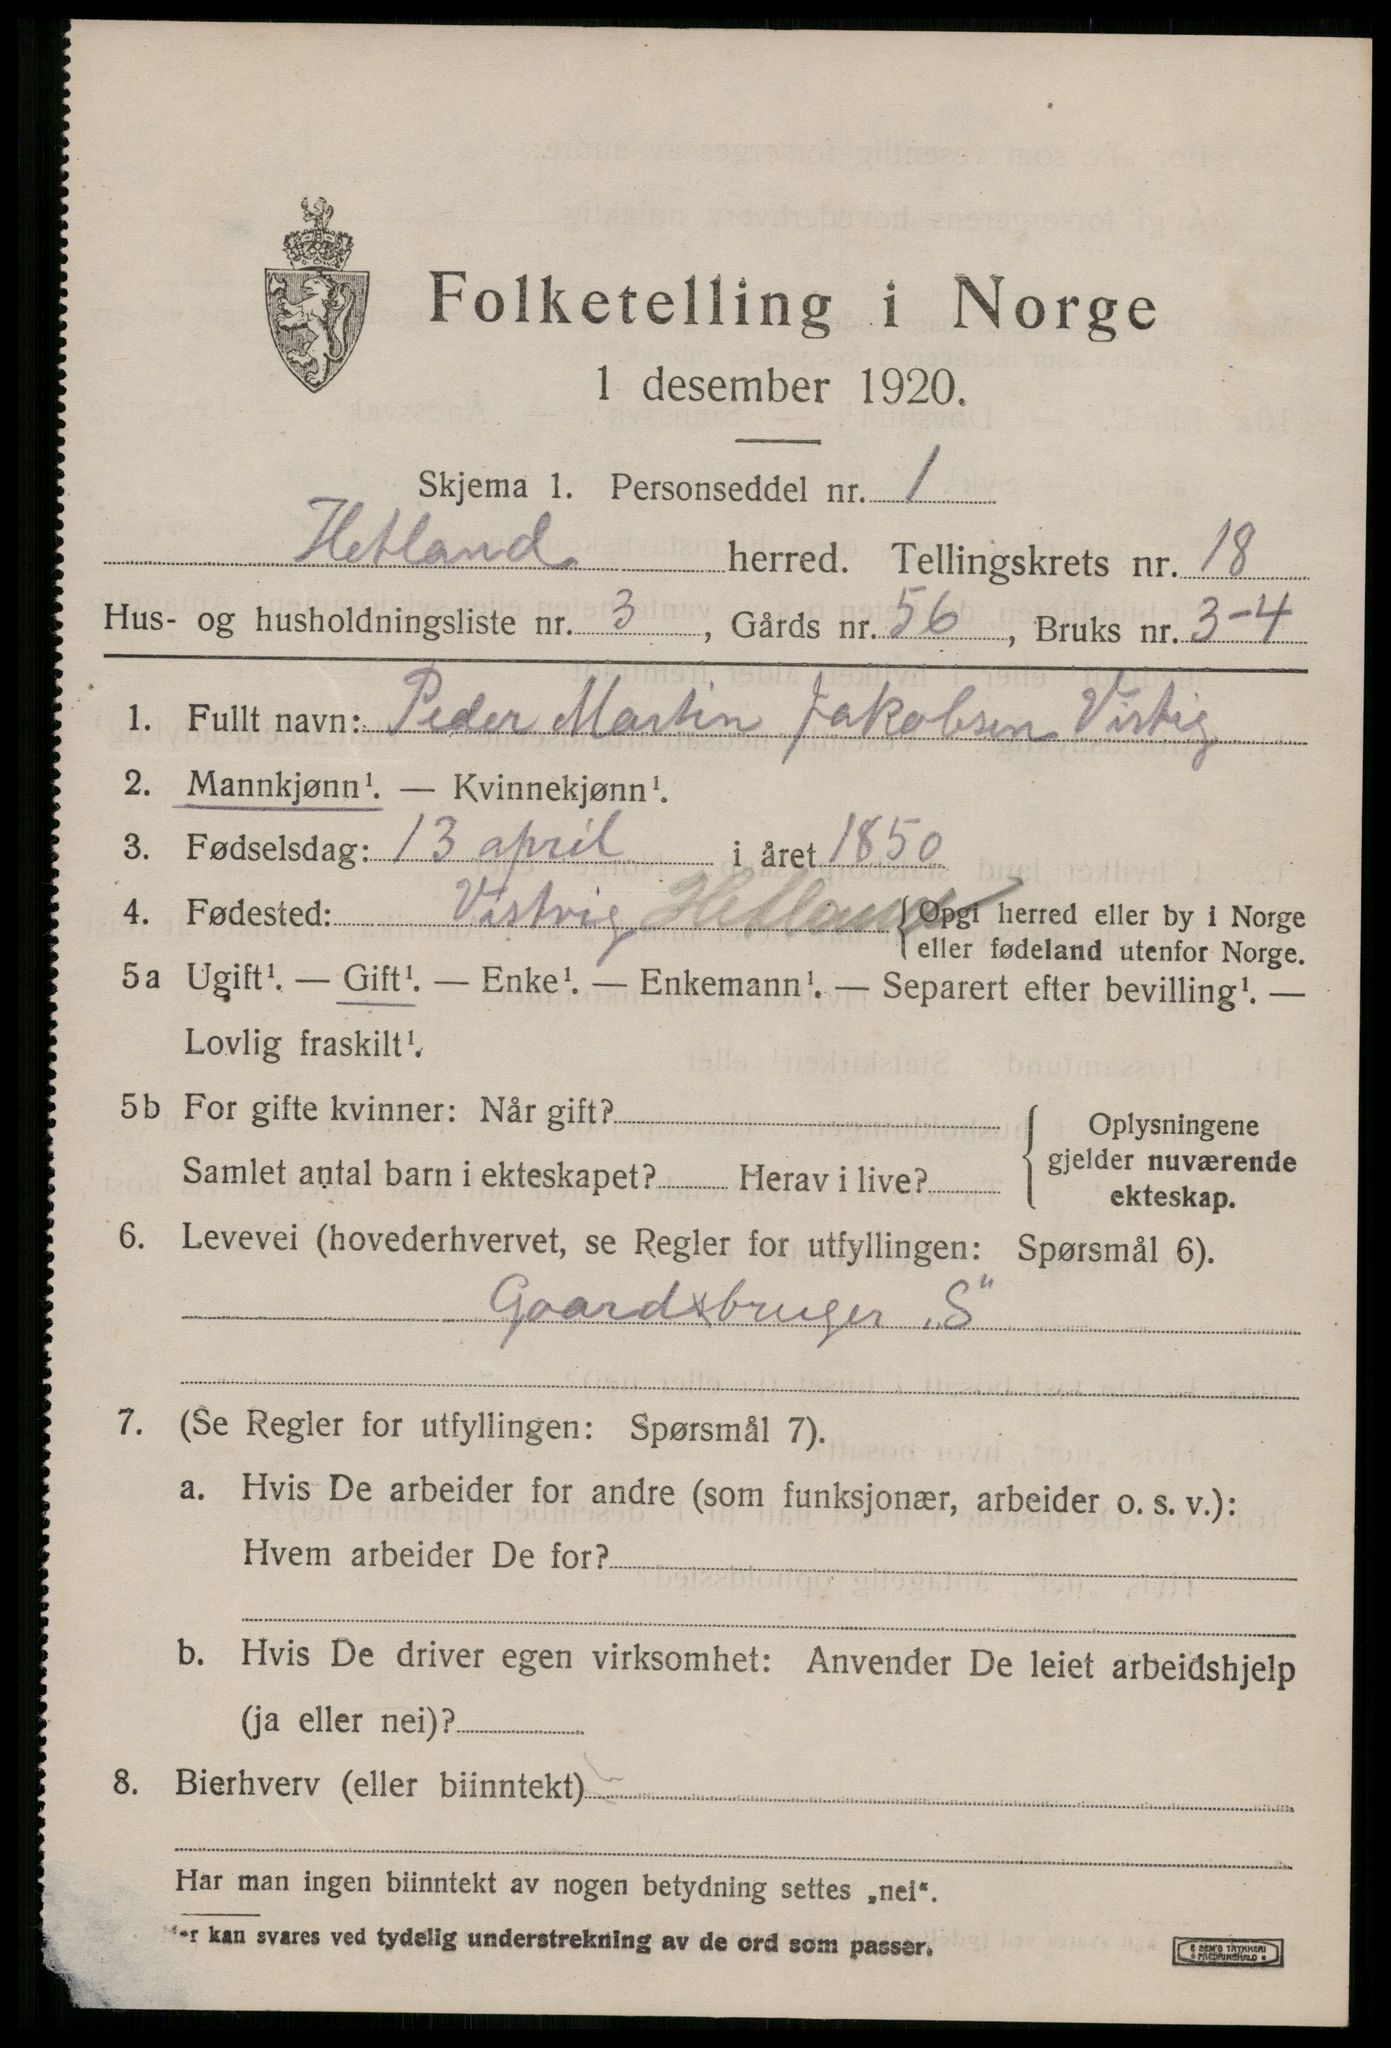 Folketelling i Norge
1 desember 1920.
Skjema 1. Personseddel nr. 1
Hetland herred. Tellingskrets nr. 18
Hus- og husholdningsliste nr. 3, Gårds nr. 56, Bruks nr. 3-4
1. Fullt navn: Peder Martin Jakobsen Vistvig
2. Mannkjønn¹. — Kvinnekjønn¹.
3. Fødselsdag: 13 april i året 1850
4. Fødested: Vistvig Hetland {Opgi herred eller by i Norge
eller fødeland utenfor Norge.
5a Ugift¹. — Gift¹. — Enke¹. — Enkemann¹. — Separert efter bevilling¹. —
Lovlig fraskilt¹.
5b For gifte kvinner: Når gift?
Samlet antal barn i ekteskapet? Herav i live?
Oplysningene
gjelder nuværende
ekteskap.
6. Levevei (hovederhvervet, se Regler for utfyllingen: Spørsmål 6).
Gaardsbruger „S"
7. (Se Regler for utfyllingen: Spørsmål 7).
a. Hvis De arbeider for andre (som funksjonær, arbeider o. s. v.):
Hvem arbeider De for?
b. Hvis De driver egen virksomhet: Anvender De leiet arbeidshjelp
(ja eller nei)?
8. Bierhverv (eller biinntekt) -
Har man ingen biinntekt av nogen betydning settes „nei“.
kan svares ved tydelig understrekning av de ord som passer.
SEM'S TRYKKERI
FREDRIKSHALD